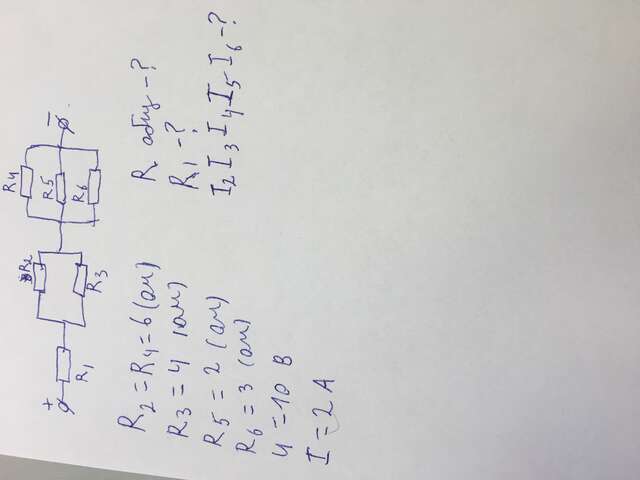 R4
R2
+
R5
−
R1
R3
R6
R2 = R4 = 6 (ом)
R3 = 4 (ом)
R5 = 2 (ом)
R6 = 3 (ом)
U = 10 В
I = 2 А
R общ - ?
R1 - ?
I2 I3 I4 I5 I6 - ?